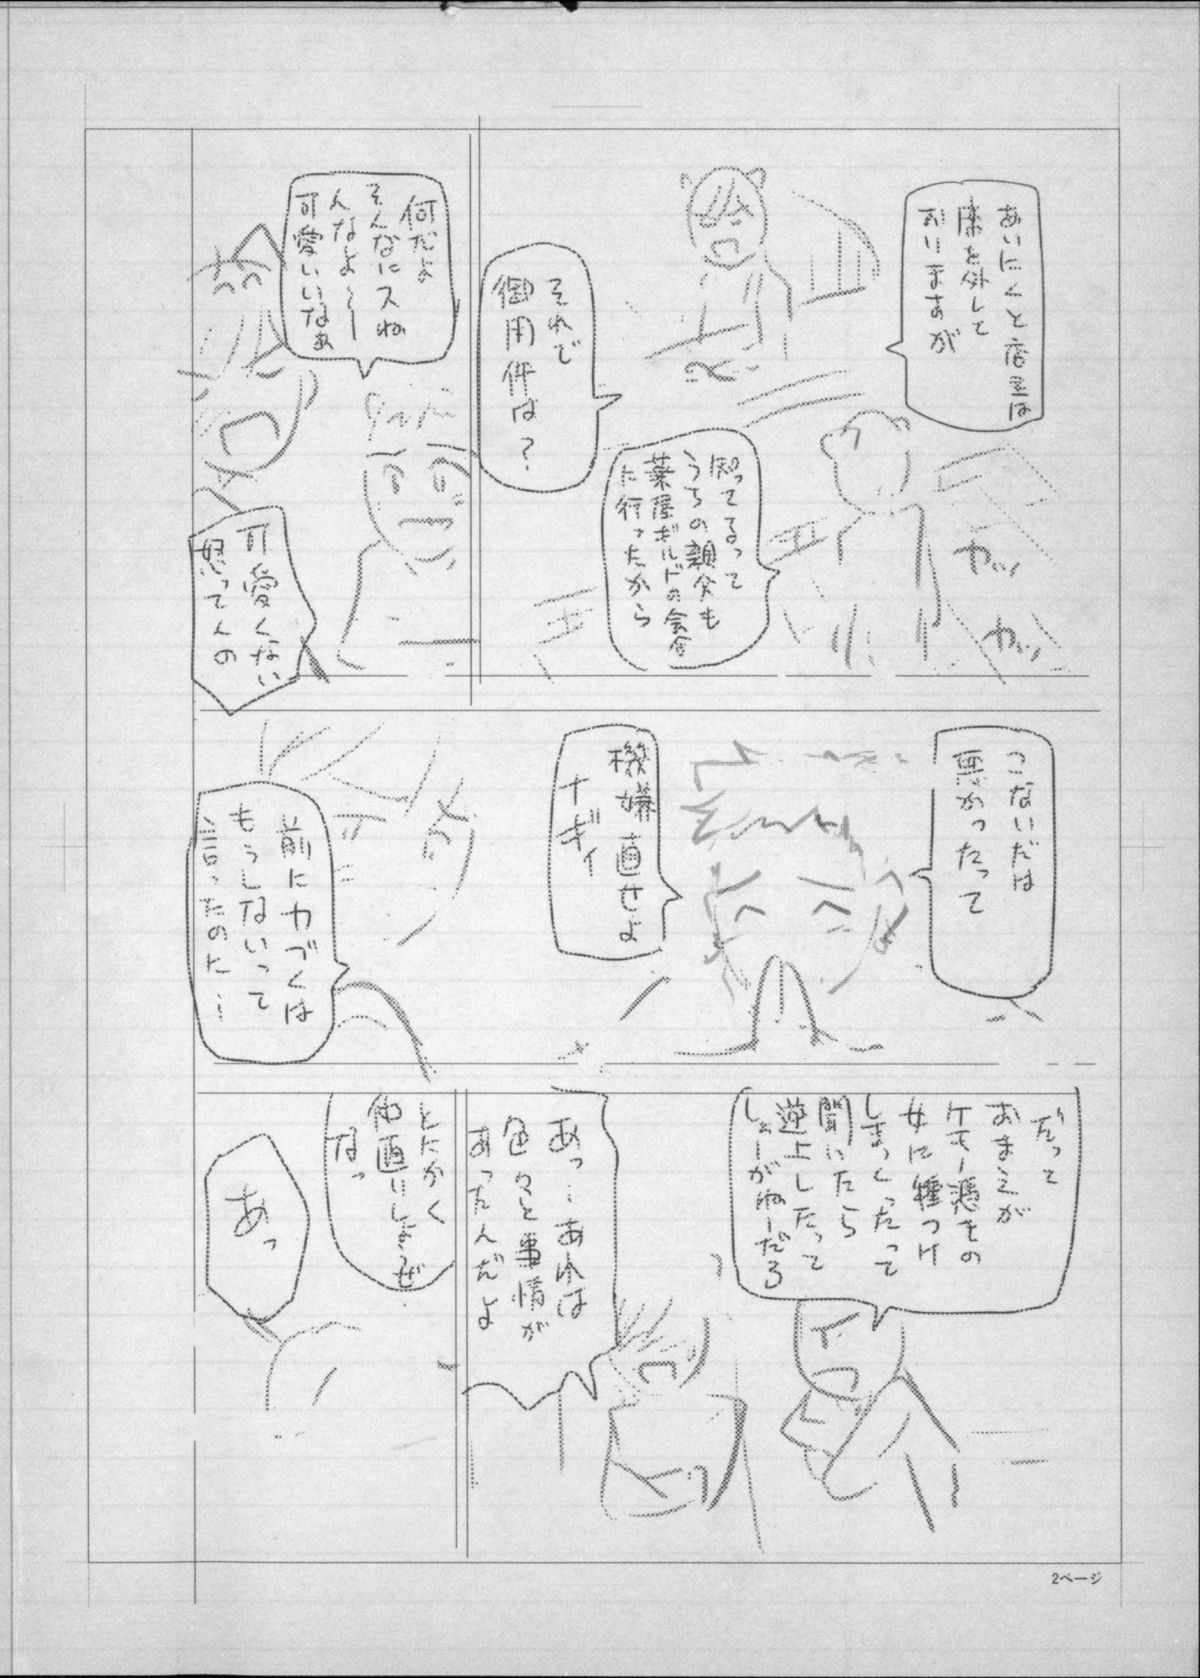 あいにくと店主は
席を外して
おりますが
カッ
カッ
知ってるって
うちの親父も
薬屋ギルドの会合
に行ったから
それで
御用件は?
何だよ
そんなにスね
んなよ〜
可愛いなぁ
可愛くない
怒ってんの
こないだは
悪かったって
機嫌直せよ
ナギィ
前に力づくは
もうしないって
言ったのに…
だって
おまえが
ケモノ憑きの
女に種つけ
しまくったって
聞いたら
逆上したって
しょーがねーだろ
あっ…あれは
色々と事情が
あったんだよ
とにかく
仲直りしようぜ
なっ
あっ
2ページ